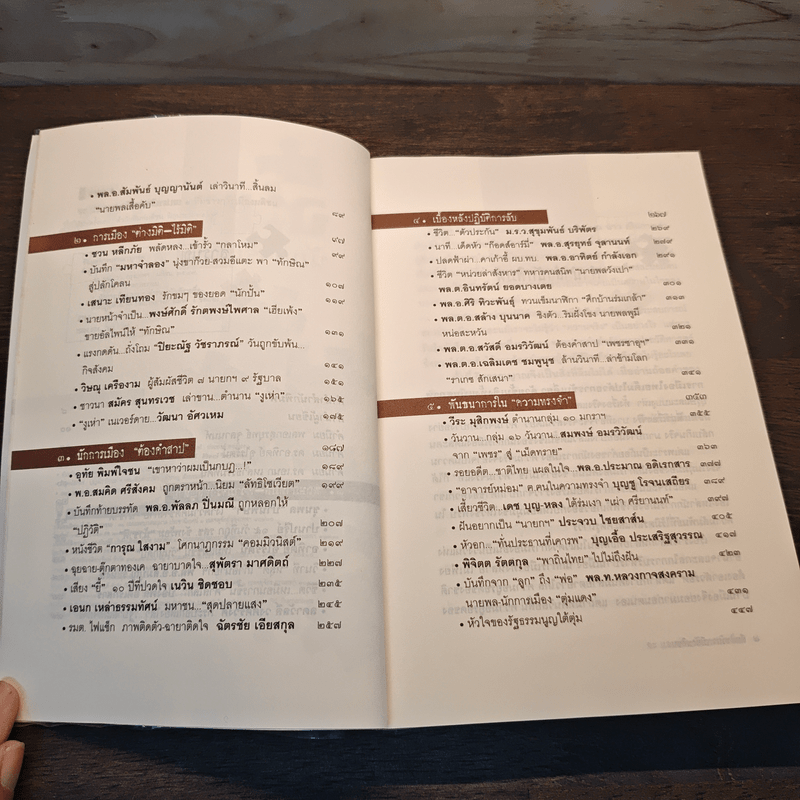 • พล.อ.สัมพันธ์ บุญญานันต์ เล่าวินาที...สิ้นลม
"นายพลเสื้อคับ" ๘๙
๒. การเมือง "ต่างมิติ–ไร้มิติ" ๙๗
• ชวน หลีกภัย พลัดหลง...เข้ารั้ว "กลาโหม" ๙๙
• บันทึก "มหาจำลอง" นุ่งขาก๊วย-สวมอีแตะ พา "ทักษิณ"
สู่ปลักโคลน ๑๐๗
• เสนาะ เทียนทอง รักขมๆ ของยอด "นักปั้น" ๑๑๙
• นายหน้าจำเป็น...พงษ์ศักดิ์ รักตพงษ์ไพศาล "เฮียเพ้ง"
ขายอัลไพน์ให้ "ทักษิณ" ๑๓๑
• แรงกดดัน...ถั่งโถม "ปิยะณัฐ วัชราภรณ์" วันถูกขับพ้น...
กิจสังคม ๑๔๑
• วิษณุ เครืองาม ผู้สัมผัสชีวิต ๗ นายกฯ ๙ รัฐบาล ๑๕๑
• ชาวนา สมัคร สุนทรเวช เล่าขาน...ตำนาน "งูเห่า" ๑๖๕
• "งูเห่า" เนเวอร์ดาย...วัฒนา อัศวเหม ๑๗๕
๓. นักการเมือง "ต้องคำสาป" ๑๘๗
• อุทัย พิมพ์ใจชน "เขาหาว่าผมเป็นกบฏ...!" ๑๘๙
• พ.อ.สมคิด ศรีสังคม ถูกตราหน้า...นิยม "ลัทธิโซเวียต" ๑๙๙
• บันทึกท้ายบรรทัด พล.อ.พัลลภ ปิ่นมณี ถูกหลอกให้
"ปฏิวัติ" ๒๐๗
• หนังชีวิต "การุณ ใสงาม" โศกนาฏกรรม "คอมมิวนิสต์" ๒๑๙
• ฉุยฉาย-ตุ๊กตาทองเค ฉายาบาดใจ...สุพัตรา มาศดิตถ์ ๒๒๗
• เสียง "ยี้" ๑๐ ปีที่ปวดใจ เนวิน ชิดชอบ ๒๓๕
• เอนก เหล่าธรรมทัศน์ มหาชน..."สุดปลายแสง" ๒๔๕
• รมต. ไฟแช็ก ภาพติดตัว-ฉายาติดใจ ฉัตรชัย เอียสกุล ๒๕๗
๔. เบื้องหลังปฏิบัติการลับ ๒๖๗
• ชีวิต..."ตัวประกัน" ม.ร.ว.สุขุมพันธ์ บริพัตร ๒๖๙
• นาที...เด็ดหัว "ก๊อดส์อาร์มี่" พล.อ.สุรยุทธ์ จุลานนท์ ๒๗๙
• ปลดฟ้าผ่า...คาเก้าอี้ ผบ.ทบ. พล.อ.อาทิตย์ กำลังเอก ๒๙๑
• ชีวิต "หน่วยล่าสังหาร" ทหารคนสนิท "นายพลวังเปา"
พล.ต.อินทรัตน์ ยอดบางเตย ๓๐๑
• พล.อ.ศิริ ทิวะพันธุ์ ทวนเข็มนาฬิกา "ศึกบ้านร่มเกล้า" ๓๑๓
• พล.ต.อ.สล้าง บุนนาค ชิงตัว...ริมฝั่งโขง นายพลพูมี
หน่อสะหวัน ๓๒๑
• พล.ต.อ.สวัสดิ์ อมรวิวัฒน์ ต้องคำสาป "เพชรซาอุฯ" ๓๓๑
• พล.ต.อ.เฉลิมเดช ชมพูนุช ล้านวินาที...ล่าข้ามโลก
"ราเกซ สักเสนา" ๓๔๑
๕. พันธนาการใน "ความทรงจำ" ๓๕๓
• วีระ มุสิกพงษ์ ตำนานกลุ่ม ๑๐ มกราฯ ๓๕๕
• วันวาน...กลุ่ม ๑๖ วันวาน...สมพงษ์ อมรวิวัฒน์
จาก "เพชร" สู่ "เม็ดทราย" ๓๖๓
• รอยอดีต...ชาติไทย แผลในใจ...พล.อ.ประมาณ อดิเรกสาร ๓๗๗
• "อาจารย์หม่อม" ค.คนในความทรงจำ บุญชู โรจนเสถียร ๓๘๙
• เสี้ยวชีวิต...เดช บุญ-หลง ใต้ร่มเงา "เผ่า ศรียานนท์" ๓๙๗
• ฝันอยากเป็น "นายกฯ" ประจวบ ไชยสาส์น ๔๐๕
• หัวอก..."ทั่นประธานที่เคารพ" บุญเอื้อ ประเสริฐสุวรรณ ๔๑๘
• พิจิตต รัตตกุล "พาถิ่นไทย" ไปไม่ถึงฝัน ๔๒๓
• บันทึกจาก "ลูก" ถึง "พ่อ" พล.ท.หลวงกาจสงคราม
นายพล-นักการเมือง "ตุ่มแดง" ๔๓๑
• หัวใจของรัฐธรรมนูญใต้ตุ่ม ๔๔๗